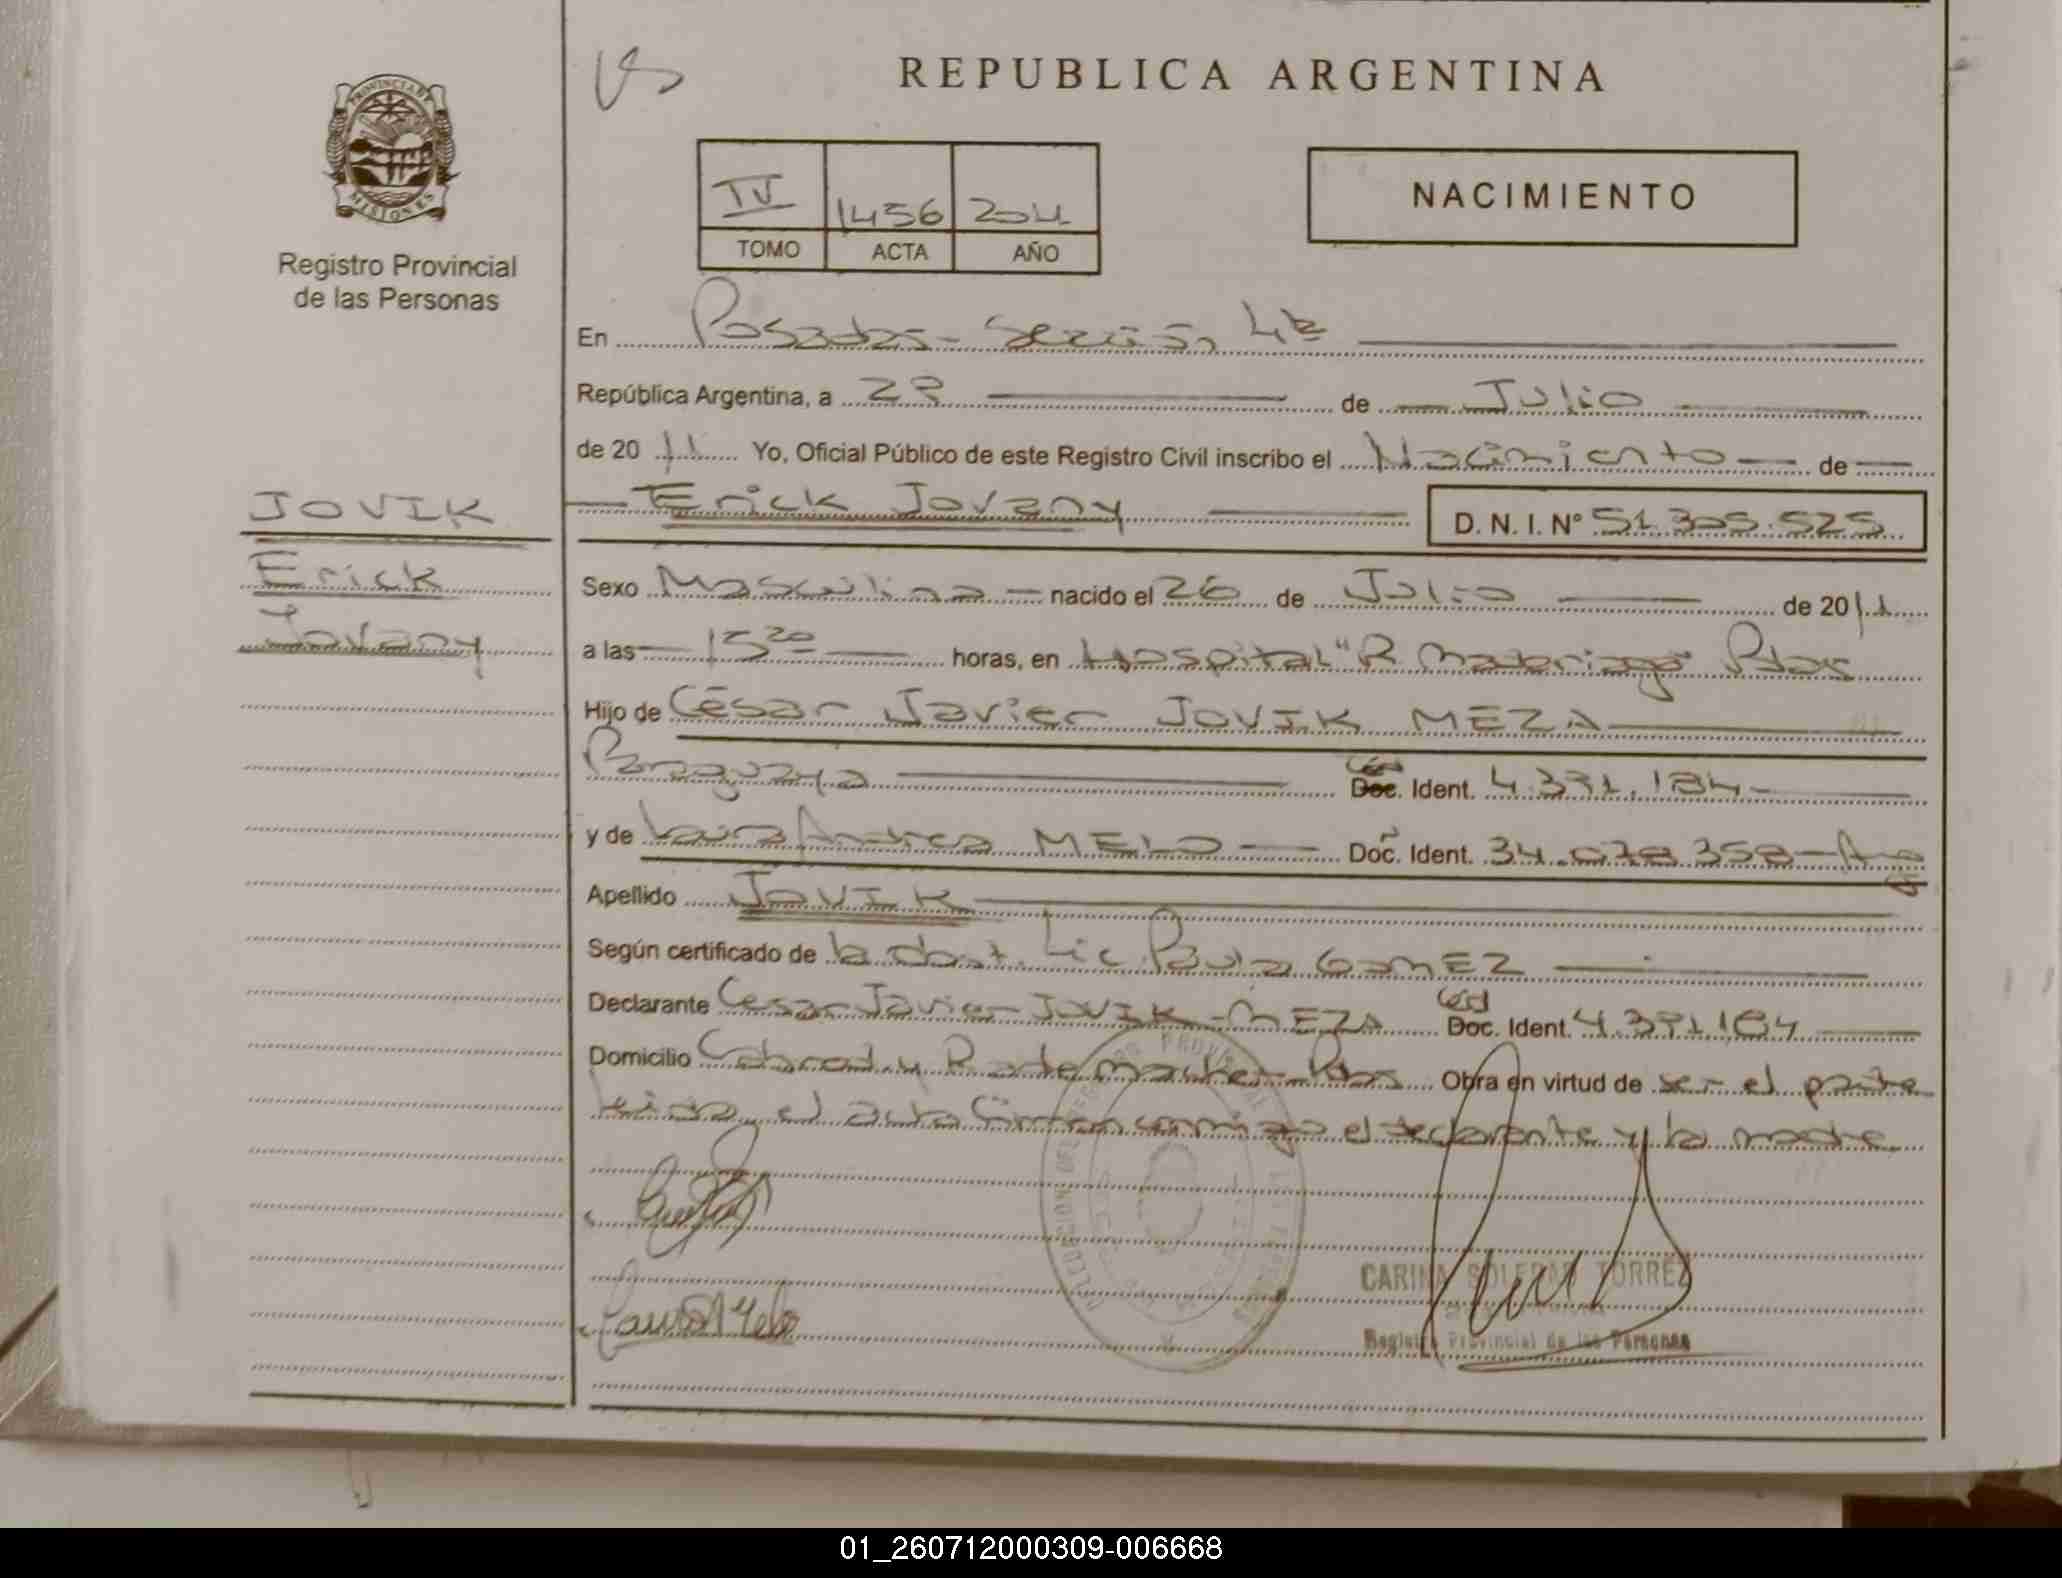 REPUBLICA ARGENTINA
PROVINCIA DE
MISIONES
Registro Provincial
de las Personas
NACIMIENTO
IV 1456 2011
TOMO ACTA AÑO
En Posadas - Sección 4ta
República Argentina, a 2 de Julio
de 20 11 Yo, Oficial Público de este Registro Civil inscribo el Nacimiento de
Erick Jovany D. N. I. N° 51.305.525
JOVIK
Erick
Jovany
Sexo Masculino nacido el 26 de Julio de 20 11
a las 15 20 horas, en Hospital "R. Madariaga" Pdas
Hijo de César Javier JOVIK MEZA
Paraguaya Céd Doc. Ident. 4.391.184
y de Laura Andrea MELO Doc. Ident. 34.078.358 - Arg
Apellido JOVIK
Según certificado de la obst. Lic. Paula GOMEZ
Declarante Cesar Javier JOVIK - MEZA Céd Doc. Ident. 4.391.184
Domicilio y Rademacher - Pdas Obra en virtud de ser el padre
el acta firman conmigo el declarante y la madre.
Laura Melo
CARINA SOLEDAD TORREZ
Registro Provincial de las Personas
01_260712000309-006668